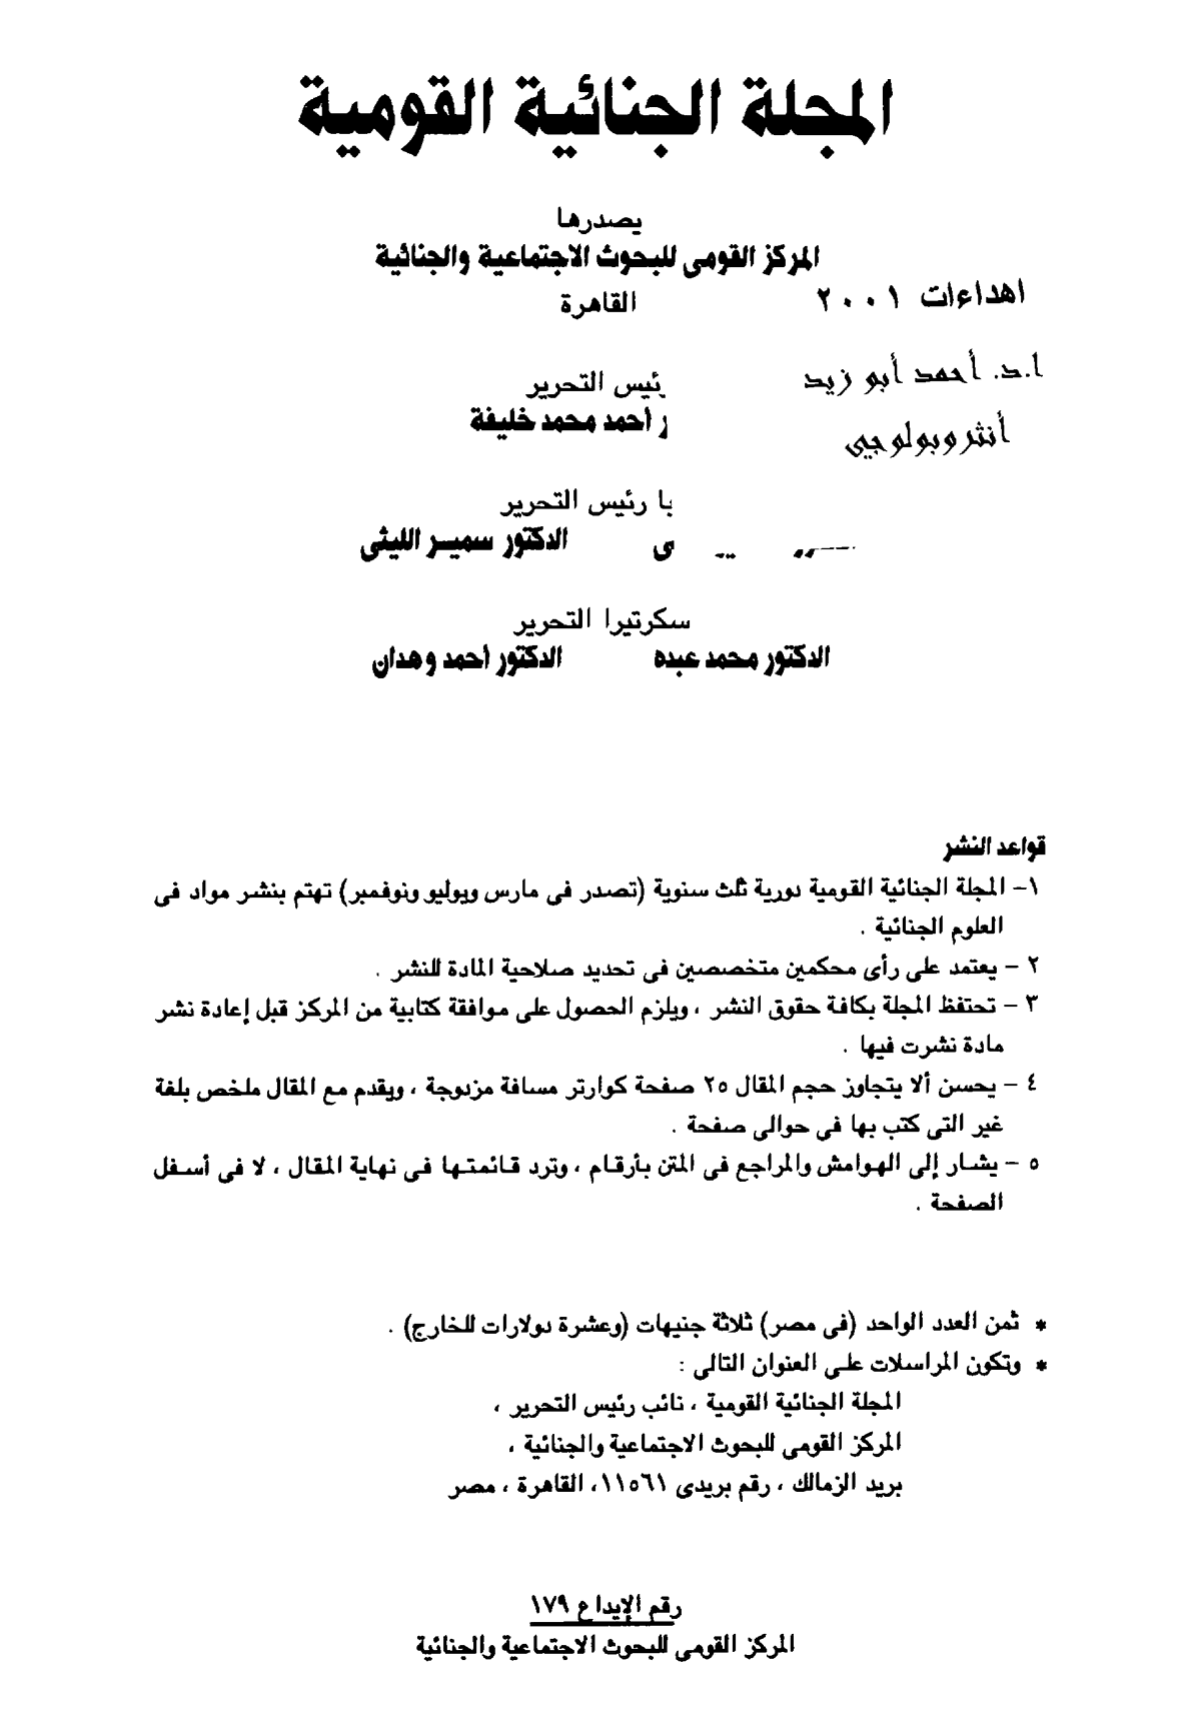 المجلة الجنائية القومية
يصدرها
المركز القومى للبحوث الاجتماعية والجنائية
القاهرة
اهداءات ٢٠٠١
ا.د. أحمد أبو زيد
أنثروبولوجي
ئيس التحرير
ر أحمد محمد خليفة
با رئيس التحرير
ى الدكتور سميـر الليثى
سكرتيرا التحرير
الدكتور محمد عبده الدكتور أحمد وهدان
قواعد النشر
١- المجلة الجنائية القومية دورية ثلث سنوية (تصدر فى مارس ويوليو ونوفمبر) تهتم بنشر مواد فى
العلوم الجنائية .
٢ - يعتمد على رأى محكمين متخصصين فى تحديد صلاحية المادة للنشر .
٣ - تحتفظ المجلة بكافة حقوق النشر ، ويلزم الحصول على موافقة كتابية من المركز قبل إعادة نشر
مادة نشرت فيها .
٤ - يحسن ألا يتجاوز حجم المقال ٢٥ صفحة كوارتر مسافة مزدوجة ، ويقدم مع المقال ملخص بلغة
غير التى كتب بها فى حوالى صفحة .
٥ - يشار إلى الهوامش والمراجع فى المتن بأرقام ، وترد قائمتها فى نهاية المقال ، لا فى أسفل
الصفحة .
* ثمن العدد الواحد (فى مصر) ثلاثة جنيهات (وعشرة دولارات للخارج) .
* وتكون المراسلات على العنوان التالى :
المجلة الجنائية القومية ، نائب رئيس التحرير ،
المركز القومى للبحوث الاجتماعية والجنائية ،
بريد الزمالك ، رقم بريدى ١١٥٦١، القاهرة ، مصر
رقم الإيداع ١٧٩
المركز القومى للبحوث الاجتماعية والجنائية